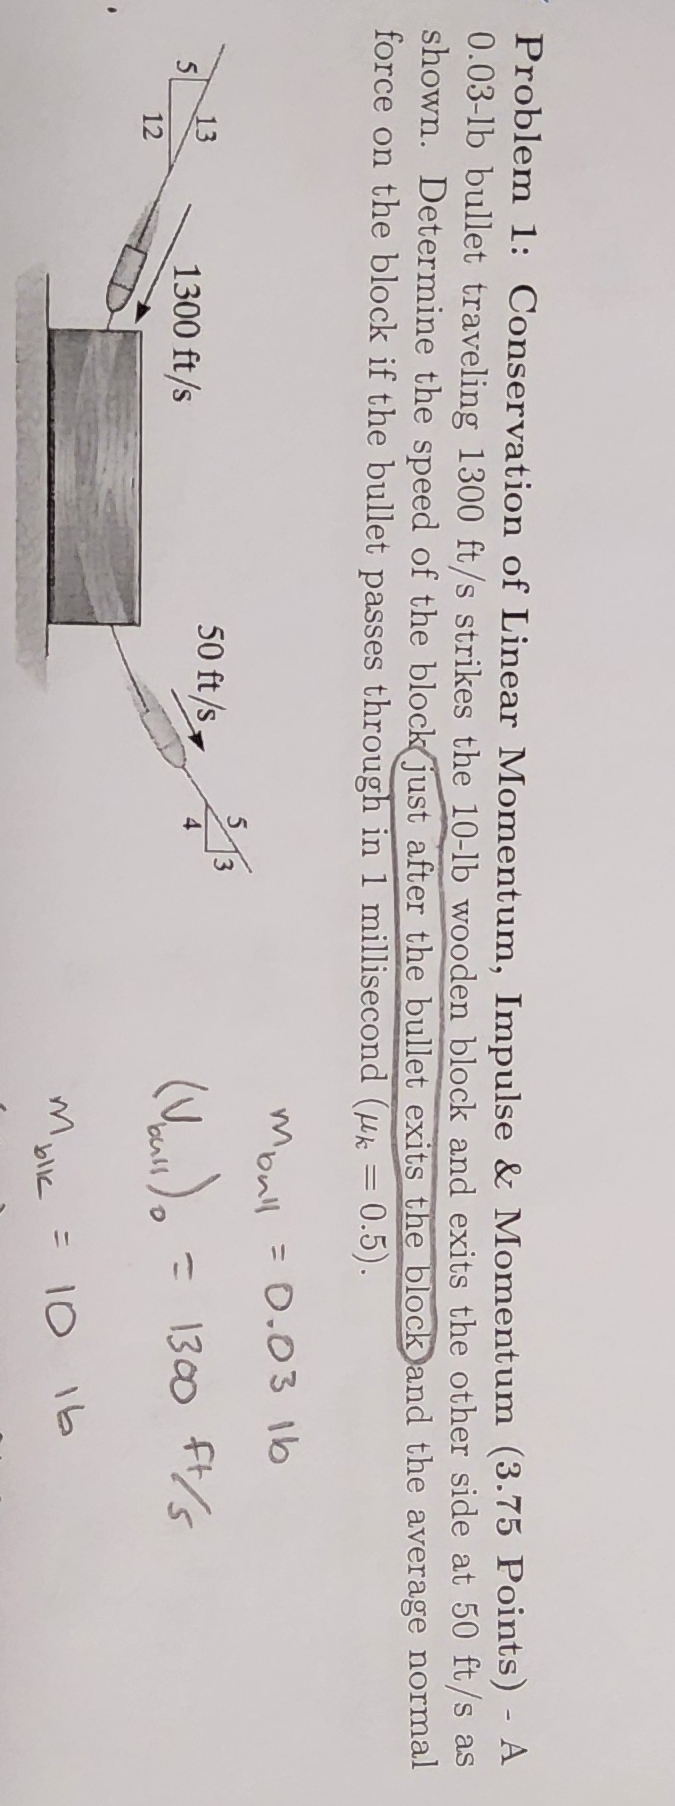 Problem 1: Conservation of Linear Momentum, Impulse & Momentum (3.75 Points) - A
0.03-lb bullet traveling 1300 ft/s strikes the 10-lb wooden block and exits the other side at 50 ft/s as
shown. Determine the speed of the block just after the bullet exits the block and the average normal
force on the block if the bullet passes through in 1 millisecond (μk = 0.5).
m bull = 0.03 lb
(Vbull)o = 1300 ft/s
m blk = 10 lb
5
13
12
1300 ft/s
50 ft/s
5
3
4